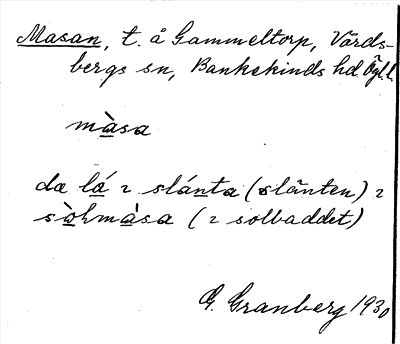 Masan, t. å Gammeltorp, Vårds-
bergs sn, Bankekinds hd. Ögl.
màsa
dæ lá ɿ slánta (slänten) ɿ
sòhmàsa (ɿ solbaddet)
G. Granberg 1930